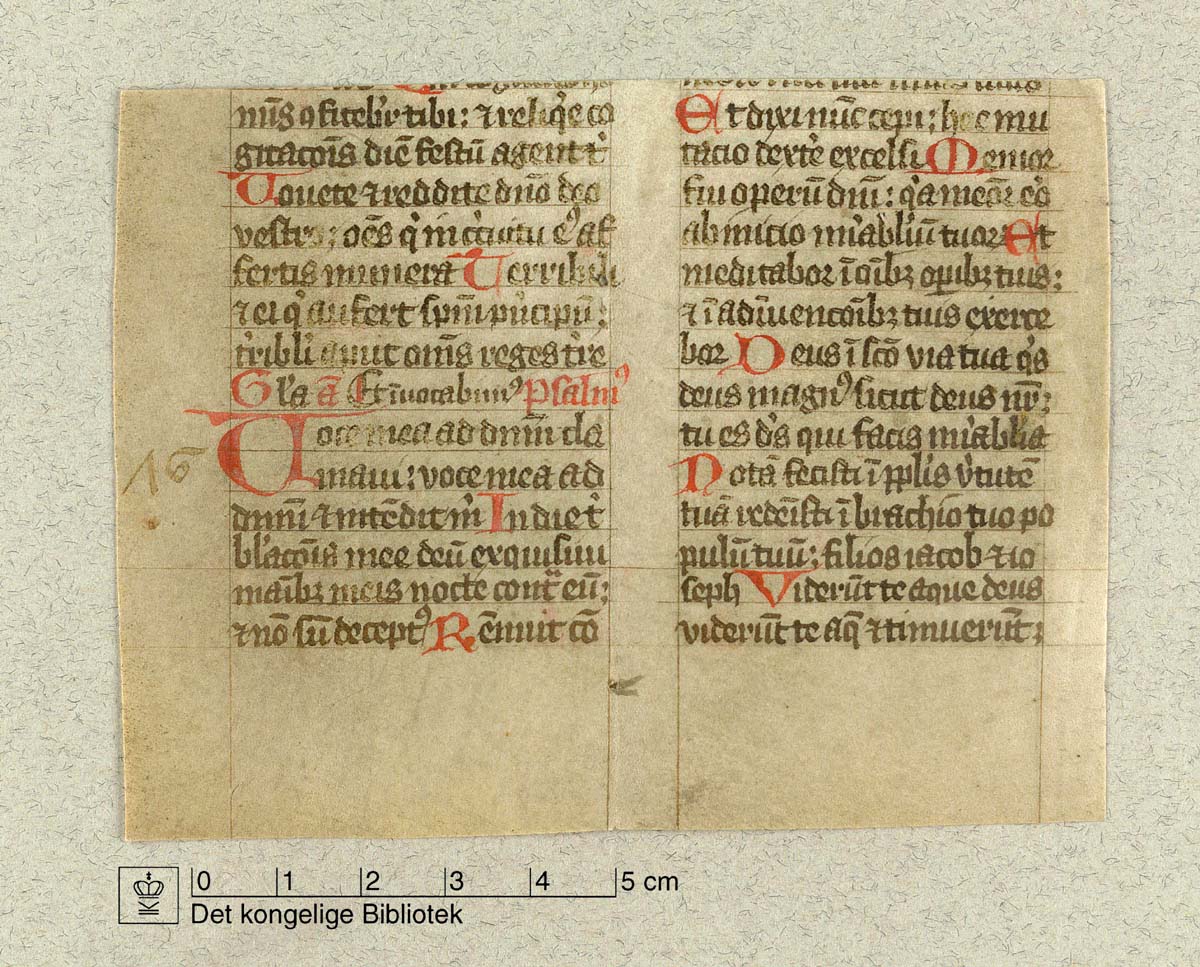 mīs ꝯfitebr̄ tibi: ⁊ reliq̇e co
gitacōis diē festū agent t̉
Vouete ⁊ reddite dn̄o deo
vestro: oēs q̇ in c̉cuitu eꝰ af
fertis munera Terribili
⁊ ei q̇ aufert sp̄m pͥncipū:
t̉ribli aput om̄s reges t̉re
Gl̉a a Et īuocabimꝰ Psalmꝰ
Voce mea ad dn̄m cla
maui: voce mea ad
dn̄m ⁊ intēdit m̉ In die t̉
bl̉acōis mee deū exquisiui
manibꝫ meis nocte cont̉ eū:
⁊ nō sū deceptꝰ Rēnuit cō
Et dixi nūc cepi: hec mu
tacio dext̉e excelsi Memor
fui operū dn̄i: q̇a meōr eō
ab inicio mỉabl̉iū tuoꝝ Et
meditabor ī oībꝫ oꝑibꝫ tuis:
⁊ ī adīuencōibꝫ tuis exerce
bor Deus ī scō via tua q̇s
deus magnꝰ sicut deus nr̄:
tu es ds̄ qui facis mỉabl̉ia
Notā fecisti ī ppl̉is v̉tutē
tuā redēisti ī brachio tuo po
pulū tuū: filios iacob ⁊ io
seph Viderūt te aque deus
viderūt te aq̄ ⁊ timuerūt:
16
0 1 2 3 4 5 cm
Det kongelige Bibliotek